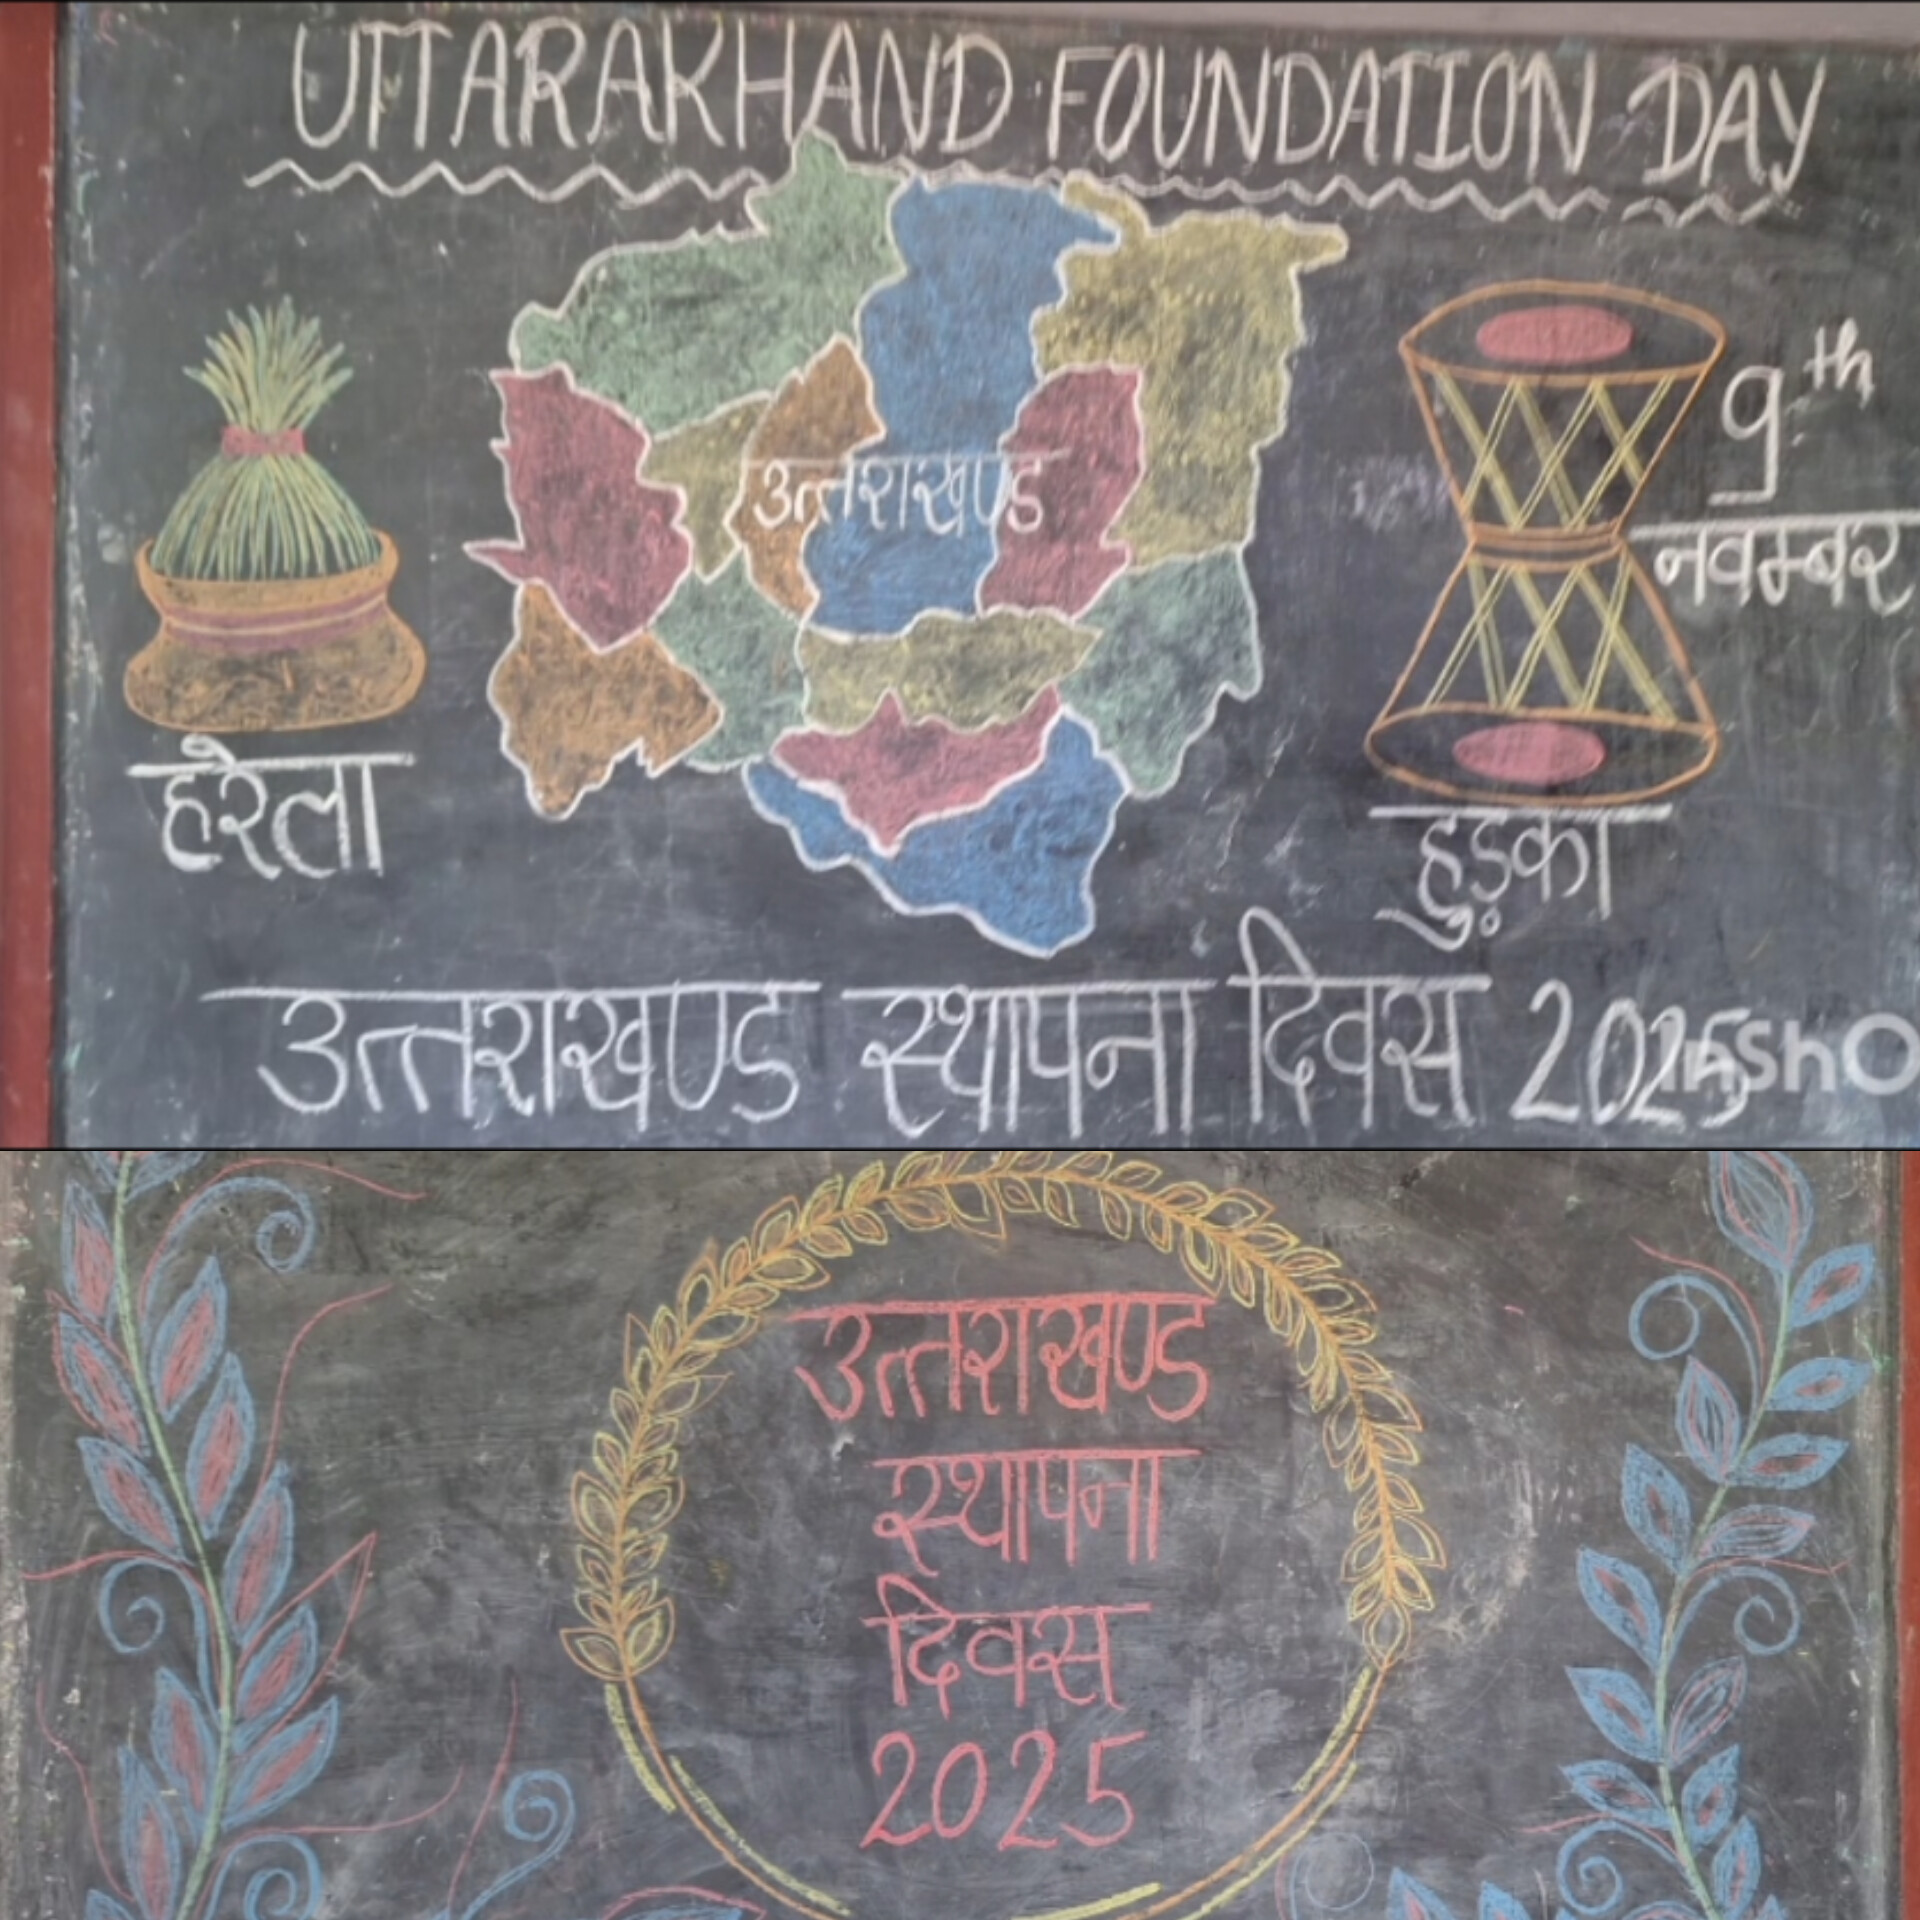 UTTARAKHAND FOUNDATION DAY
उत्तराखण्ड
9th
नवम्बर
हरेला
हुड़का
उत्तराखण्ड स्थापना दिवस 2025
InShO
उत्तराखण्ड
स्थापना
दिवस
2025